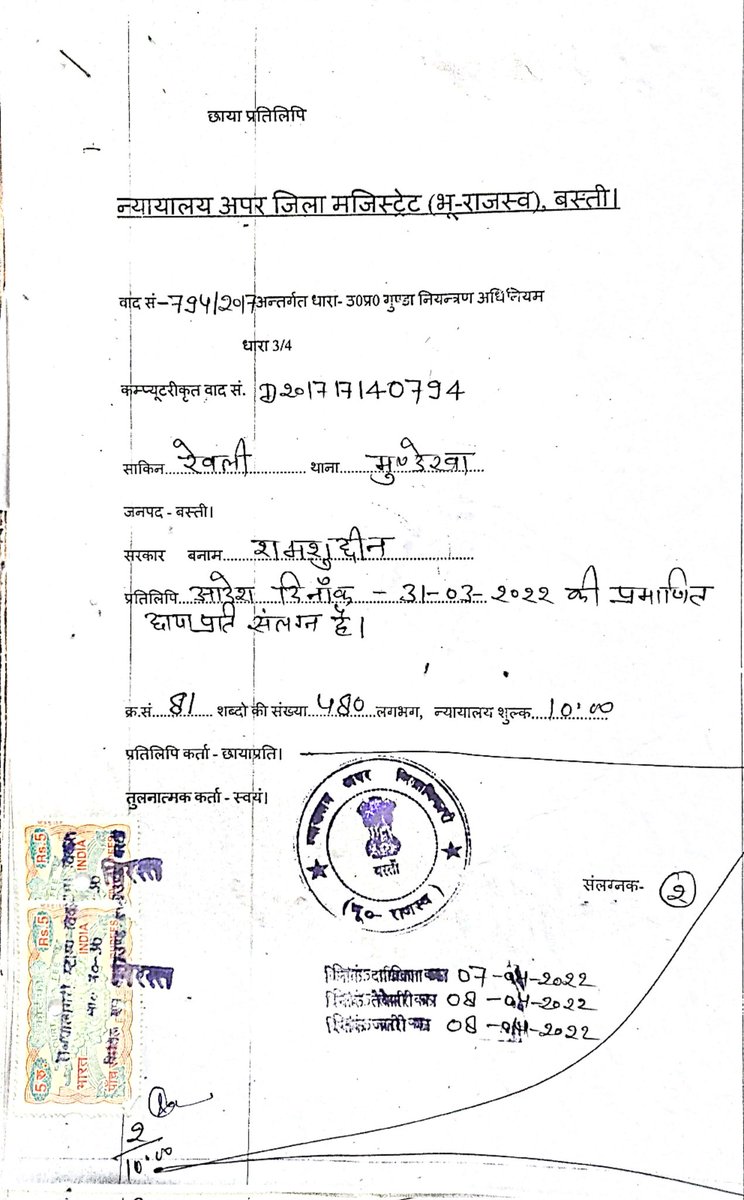 छाया प्रतिलिपि
न्यायालय अपर जिला मजिस्ट्रेट (भू-राजस्व), बस्ती।
वाद सं-794/2017 अन्तर्गत धारा- उ0प्र0 गुण्डा नियन्त्रण अधिनियम
धारा 3/4
कम्प्यूटरीकृत वाद सं. D201717140794
साकिन रेवली थाना मुण्डेरवा
जनपद - बस्ती।
सरकार बनाम शमशुद्दीन
प्रतिलिपि आदेश दिनाँक - 31-03-2022 की प्रमाणित
संलग्न है।
क्र.सं. 81 शब्दो की संख्या 480 लगभग, न्यायालय शुल्क 10.00
प्रतिलिपि कर्ता - छायाप्रति।
तुलनात्मक कर्ता - स्वयं।
न्यायालय अपर जिलाधिकारी
बस्ती
(भू०- राजस्व)
संलग्नक- 2
07-04-2022
08-04-2022
08-04-2022
Rs.5 INDIA
Rs.5 INDIA
5 रु. भारत
निरस्त
निरस्त
2
10.00